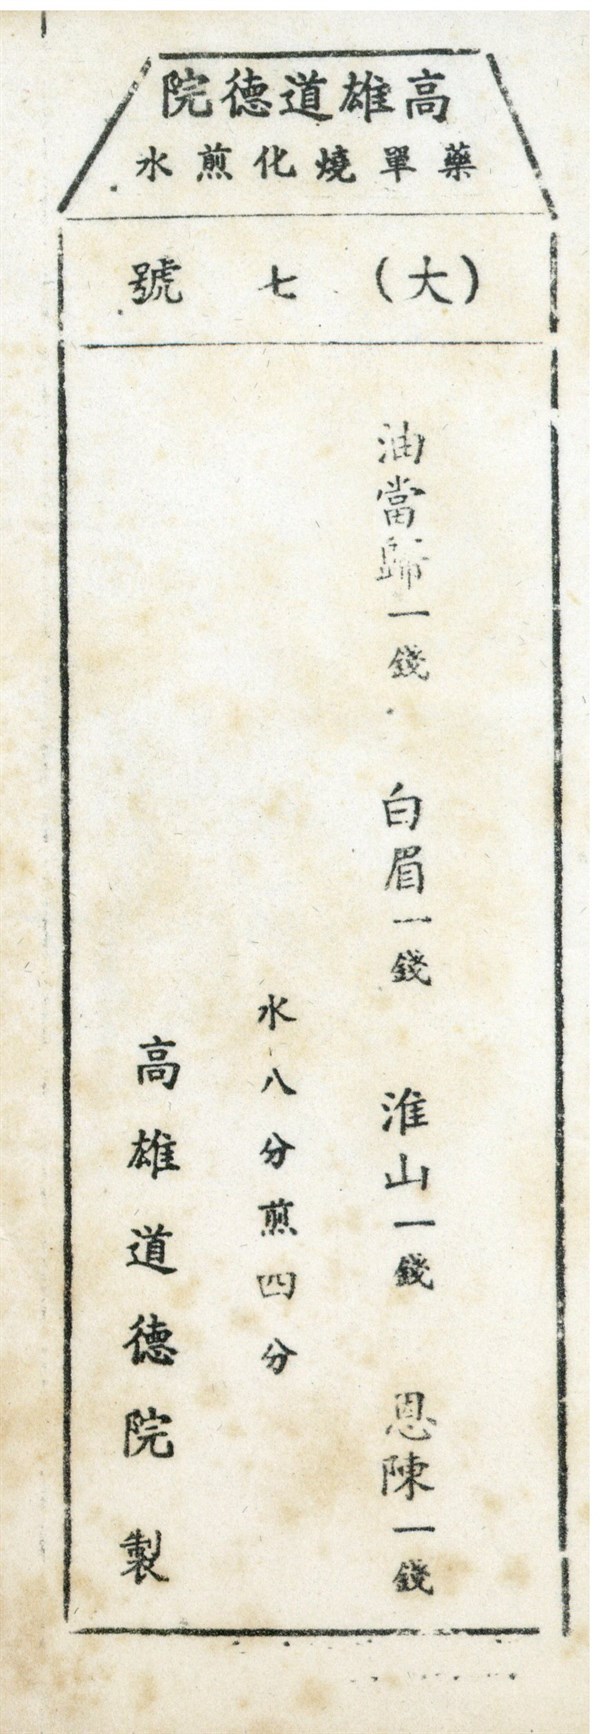 高雄道德院
藥單燒化煎水
(大)七號
油當歸一錢 白眉一錢 淮山一錢 恩陳一錢
水八分煎四分
高雄道德院製